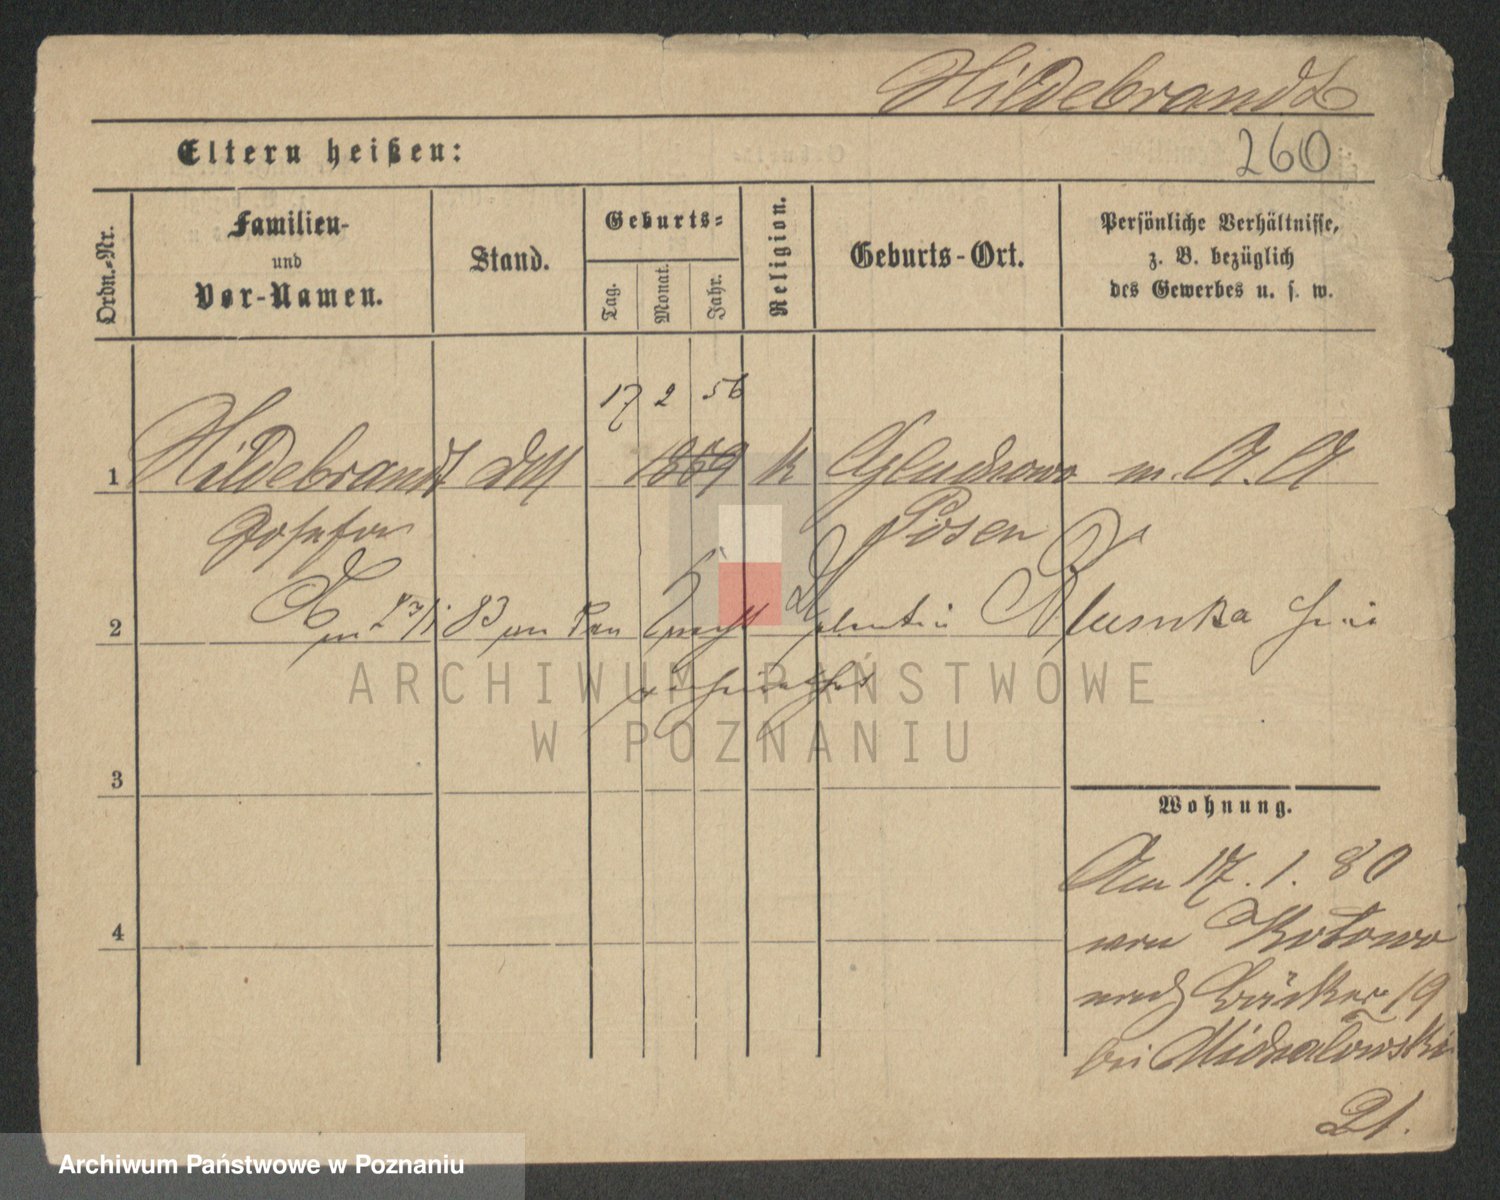 Hildebrandt
260
Eltern heißen:
Ordn.-Nr.
Familien-
und
Vor-Namen.
Stand.
Geburts-
Tag.
Monat.
Jahr.
Religion.
Geburts-Ort.
Persönliche Verhältnisse,
z. B. bezüglich
des Gewerbes u. s. w.
17 2 56
1 Hildebrandt 1859 k m.
Josefa Posen
2 83 Knecht Valentin Klumka
ARCHIWUM PAŃSTWOWE
W POZNANIU
3
Wohnung.
Am 17. 1. 80
4
von Kotowo
nach Bäcker 19
bei Michalowski
21.
Archiwum Państwowe w Poznaniu